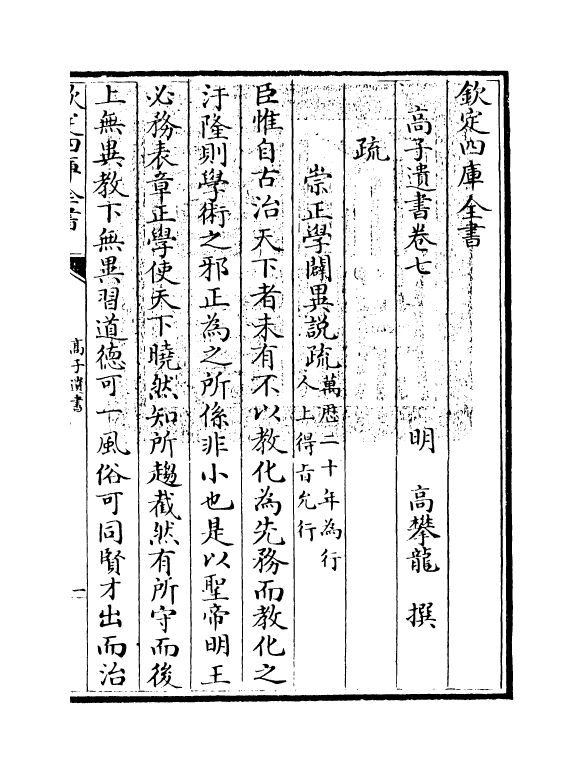 欽定四庫全書
高子遺書卷七
明 高攀龍 撰
疏
崇正學闢異說疏萬厯二十年為行
人上得㫖允行
臣惟自古治天下者未有不以教化為先務而教化之
汙隆則學術之邪正為之所係非小也是以聖帝明王
必務表章正學使天下曉然知所趨截然有所守而後
上無異教下無異習道德可一風俗可同賢才出而治
欽定四庫全書
高子遺書
一